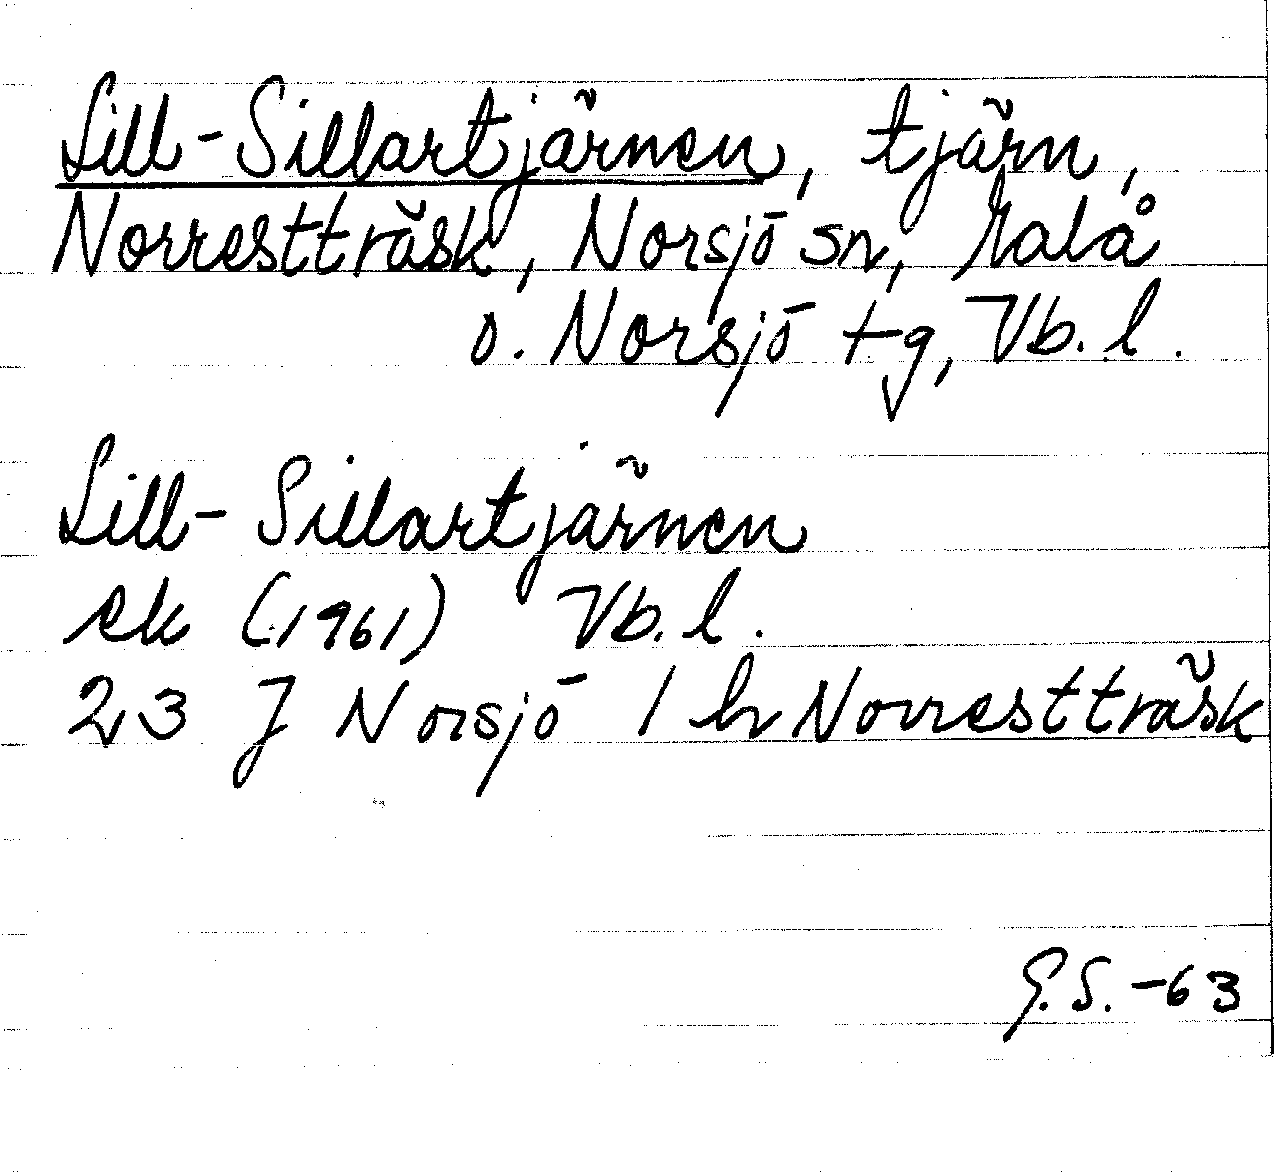 Lill-Sillartjärnen, tjärn,
Norrestträsk, Norsjö sn, Malå
o. Norsjö tg, Vb. l.
Lill-Sillartjärnen
ek (1961) Vb. l.
23 J Norsjö / h Norrestträsk
G.S. -63